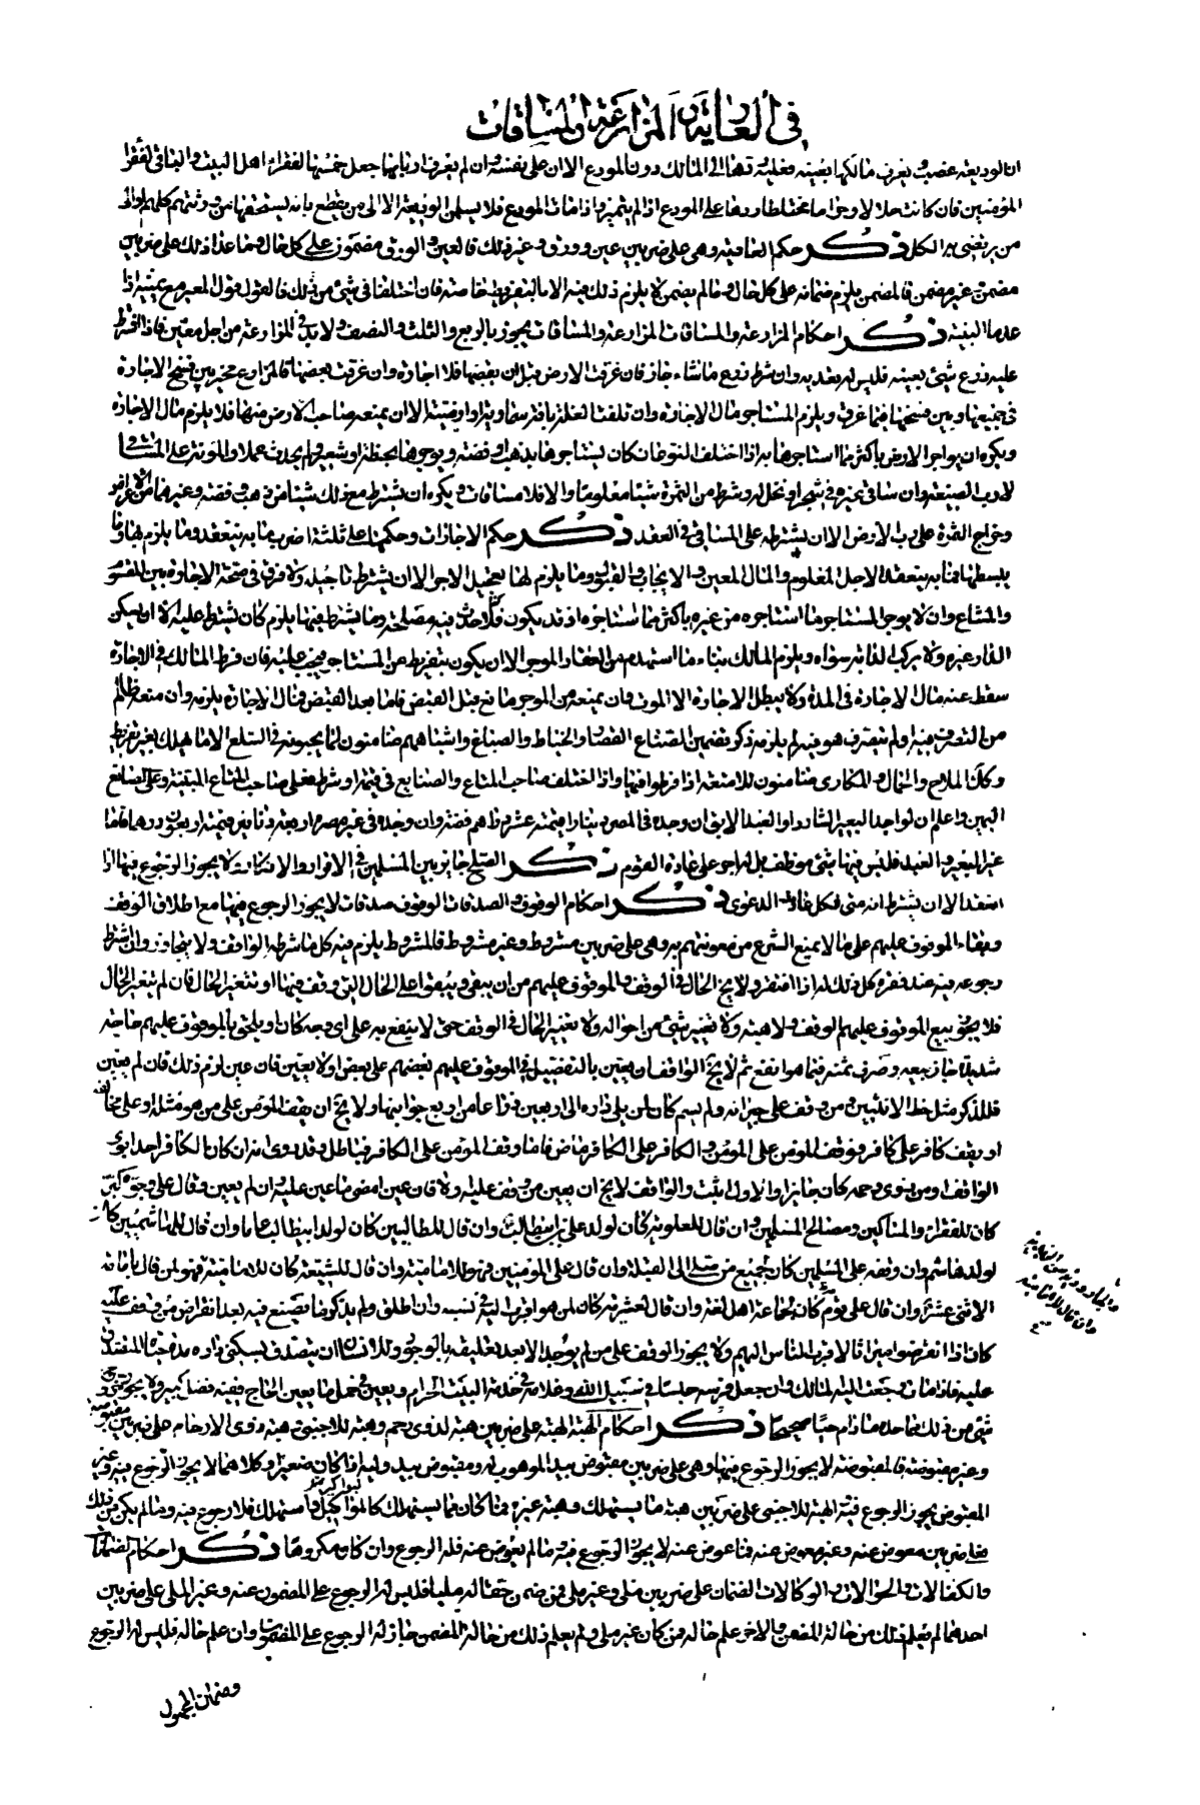 في العارية والمزارعة والمساقات
ان الوديعة غصب ويعرف مالكها بعينه فعليه ردها الى المالك دون المودع الا ان على نفسه وان لم يعرف اربابها جعل خمسها لفقراء اهل البيت والباقي لفقراء
المؤمنين فان كانت حلالا وحراما مختلطا ردها على المودع اذا لم يتميز واذا مات المودع فلا يسلمن الوديعة الا الى من يقطع بانه يستحقها من ورثتهم كلهم او الى
من يرتضى به الكل ذكر حكم العارية وهي على ضربين عين وورق وغير ذلك فالعين والورق مضمون على كل حال وما عدا ذلك على ضربين
مضمن وغير مضمن فالمضمن يلزم ضمانه على كل حال وما لم يضمن لا يلزم ذلك فيه الا بالتفريط خاصة فان اختلفا في شيء من ذلك فالقول قول المعير مع يمينه اذا
عدما البينة ذكر احكام المزارعة والمساقات المزارعة والمساقات يجوز بالربع والثلث والنصف ولا بد في المزارعة من اجل معين فاذا اشترط
عليه زرع شيء بعينه فليس له تعديه وان شرط زرع ما شاء جاز فان غرقت الارض قبل ان يقبضها فلا اجارة وان غرقت بعضها فالمزارع مخير بين فسخ الاجارة
في جميعها وبين فسخها فيما غرق ويلزم المستاجر مال الاجارة وان تلفت الغلة بآفة سماوية او ارضية الا ان يمنعه صاحب الارض منها فلا يلزم مال الاجارة
ويكره ان يواجر الارض باكثر مما استاجرها به اذا اختلف النوعان كان يستاجرها بذهب او فضة ويوجرها بحنطة او شعير ولم يحدث عملا والمؤنة على المساقي
لا رب الضيعة وان ساقى غيره في شجر او نخل له وشرط من الثمرة شيئا معلوما والا فلا مساقات ويكره ان يشترط مع ذلك شيئا من ذهب وفضة وغيرهما من الاعراض
وخراج الثمرة على رب الارض الا ان يشترطه على المساقي في العقد ذكر حكم الاجارات وحكمها على ثلثة اضرب ما به ينعقد وما يلزم بها وما
يبطلها فما به ينعقد الاجل المعلوم والمال المعين والايجاب والقبول وما يلزم لها تعجيل الاجر الا ان يشترط تاجيله ولا فرق في صحة الاجارة بين المقسوم
والمشاع وان لا يوجر المستاجر ما استاجره من غيره باكثر مما استاجره اذ قد يكون قد احدث فيه مصلحة وما يشترط فيها يلزم كان يشترط عليه الا يسكن
الدار غيره ولا يركب الدابة سواه ويلزم المالك بناء ما استهدم من العقار الموجر الا ان يكون بتفريط من المستاجر فيجب عليه فان فرط المالك في الاجارة
سقط عنه مال الاجارة في المدة ولا يبطل الاجارة الا الموت فان يمنعه من الموجر مانع قبل القبض فاما بعد القبض فمال الاجارة يلزمه وان منعه ظالم
من التصرف فيه ولم يتصرف هو فيه لم يلزمه ذكر تضمين الصناع القصار والخياط والصباغ واشباههم ضامنون لما يجنونه في السلع الا ما هلك بغير تفريط
وكذا الملاح والحمال والمكارى ضامنون للامتعة اذا فرطوا فيها واذا اختلف صاحب المتاع والصنايع في قيمة او شرط فعلى صاحب المتاع البينة وعلى الصانع
اليمين واعلم ان لواجد البعير الشارد او العبد الابق ان وجده في المصر دينارا قيمته عشرة دراهم فضة وان وجده في غير مصره اربعة دنانير قيمته اربعون درهما فضة
غير البعير والعبد فليس فيها شيء موظف بل له اجر على عادة القوم ذكر الصلح جايز بين المسلمين في الاقرار والانكار ولا يجوز الرجوع فيها اذا
انعقد الا ان يشترط انه متى نكل عادت الدعوى ذكر احكام الوقوف والصدقات الوقوف صدقات لا يجوز الرجوع فيها مع اطلاق الوقف
وبقاء الموقوف عليهم على ما لا يمنع الشرع من معونتهم به وهي على ضربين مشروط وغير مشروط فالمشروط يلزم فيه كل ما شرطه الواقف ولا يتجاوز وان شرط
رجوعه فيه عند فقره كل ذلك له اذا افتقر ولا يخ الحال في الوقف والموقوف عليهم من ان يبقى ويبقوا على الحال التي وقف فيها او تتغير الحال فان لم يتغير الحال
فلا يجوز بيع الموقوف عليهم الوقف ولا هبته ولا تغيير شيء من احواله ولا تغيير الحال في الوقف حتى لا ينتفع به على اي وجه كان او يلحق بالموقوف عليهم حاجة
شديدة جاز بيعه وصرف ثمنه فيما هو انفع ثم لا يخ الواقف ان يعين بالتفضيل في الموقوف عليهم بعضهم على بعض او لا يعين فان عين لزم ذلك فان لم يعين
فللذكر مثل حظ الانثيين ومن وقف على جيرانه ولم يسم كان لمن يلي داره الى اربعين ذراعا من اربع جوانبها ولا يخ ان يقف المؤمن على من هو مثله او على مخالفه
او يقف كافر على كافر فوقف المؤمن على المؤمن والكافر على الكافر ماض فاما وقف المؤمن على الكافر فباطل وقد روى انه ان كان الكافر احد ابوي
الواقف او من ذوي رحمه كان جايزا والاول اثبت والواقف لا يخ ان يعين من وقف عليه ولا فان عين امض ما عين عليه وان لم يعين وقال على وجوه كثيرة
كان للفقراء والمساكين ومصالح المسلمين وان قال للعلوية كان لولد علي بن ابيطالب وان قال للطالبيين كان لولد ابيطالب عاما وان قال للهاشميين كان
لولد هاشم وان وقفه على المسلمين كان لجميع من صلى الى القبلة وان قال على المؤمنين فهو للامامية وان قال للشيعة كان للامامية فهو لمن قال بامامة
الاثني عشر وان قال على قوم كان لجماعة اهل لغته وان قال لعشيرته كان لمن هو اقرب اليه في نسبه وان اطلق ولم يذكر ما يصنع فيه بعد انقراض من وقف عليه
كان اذا انقرضوا ميراثا لاقرب الناس اليهم ولا يجوز الوقف على من لم يوجد الا بعد تعليقه بالموجود وللانسان ان يتصدق بسكنى داره مدة حياة المتصدق
عليه فاذا مات رجعت اليه المالك وان جعل فرسه حبسا في سبيل الله وغلامه في خدمة البيت الحرام وبعيره في حمل ما يعين الحاج ففيه فضل كبير ولا يجوز تغيير
شيء من ذلك عما حده ما دام حيا صحيحا ذكر احكام الهبة الهبة على ضربين هبة لذوى رحم وهبة للاجنبي هبة ذوى الارحام على ضربين مقبوضة
وغير مقبوضة فالمقبوضة لا يجوز الرجوع فيها وهي على ضربين مقبوض بيد الموهوب له ومقبوض بيد وليه اذا كان صغيرا وكلاهما لا يجوز الرجوع فيه وغير
المقبوض يجوز الرجوع فيه الهبة للاجنبي على ضربين هبة ما يستهلك وهبة غيره فما كان مما يستهلك كالمؤاكيل واستهلك فلا رجوع فيه وما لم يكن من ذلك
على ضربين معوض عنه وغير معوض عنه فما عوض عنه لا يجوز الرجوع فيه وما لم يعوض عنه فله الرجوع وان كان مكروها ذكر احكام الضمانات
والكفالات والحوالات والوكالات الضمان على ضربين ملى وغير ملى فمن ضمن حقا له مليا فليس له الرجوع على المضمون عنه وغير الملى على ضربين
احدهما لم يعلم ذلك من حالة المضمن والاخر علم حاله فمن كان غير ملى ولم يعلم ذلك من حاله المضمن جاز له الرجوع على المضمون وان علم حاله فليس له الرجوع
وضمان المجهول